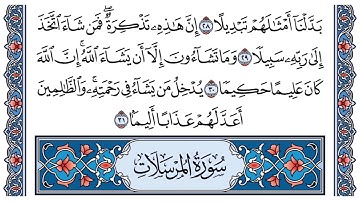 بَدَّلْنَآ أَمْثَـٰلَهُمْ تَبْدِيلًا ٢٨ إِنَّ هَـٰذِهِۦ تَذْكِرَةٌ ۖ فَمَن شَآءَ ٱتَّخَذَ
إِلَىٰ رَبِّهِۦ سَبِيلًا ٢٩ وَمَا تَشَآءُونَ إِلَّآ أَن يَشَآءَ ٱللَّهُ ۚ إِنَّ ٱللَّهَ
كَانَ عَلِيمًا حَكِيمًا ٣٠ يُدْخِلُ مَن يَشَآءُ فِى رَحْمَتِهِۦ ۚ وَٱلظَّـٰلِمِينَ
أَعَدَّ لَهُمْ عَذَابًا أَلِيمًۢا ٣١
سُورَةُ المُرْسَلَات